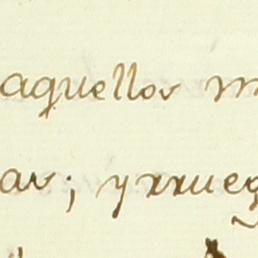 aquellos m
as; y rrueg